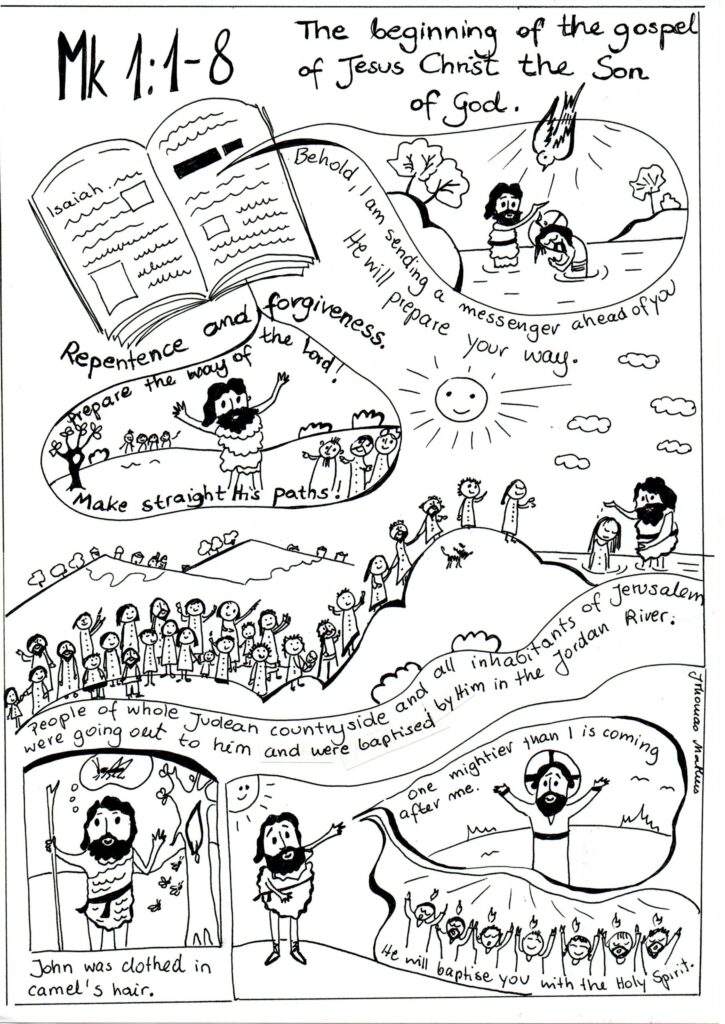 Mk 1:1-8
The beginning of the gospel
of Jesus Christ the Son
of God.
Isaiah
Behold, I am sending a messenger ahead of you
He will prepare your way.
Repentence and forgiveness.
Prepare the way of the Lord!
Make straight His paths!
People of whole Judean countryside and all inhabitants of Jerusalem
were going out to him and were baptised by Him in the Jordan River.
John was clothed in
camel's hair.
One mightier than I is coming
after me.
He will baptise you with the Holy Spirit.